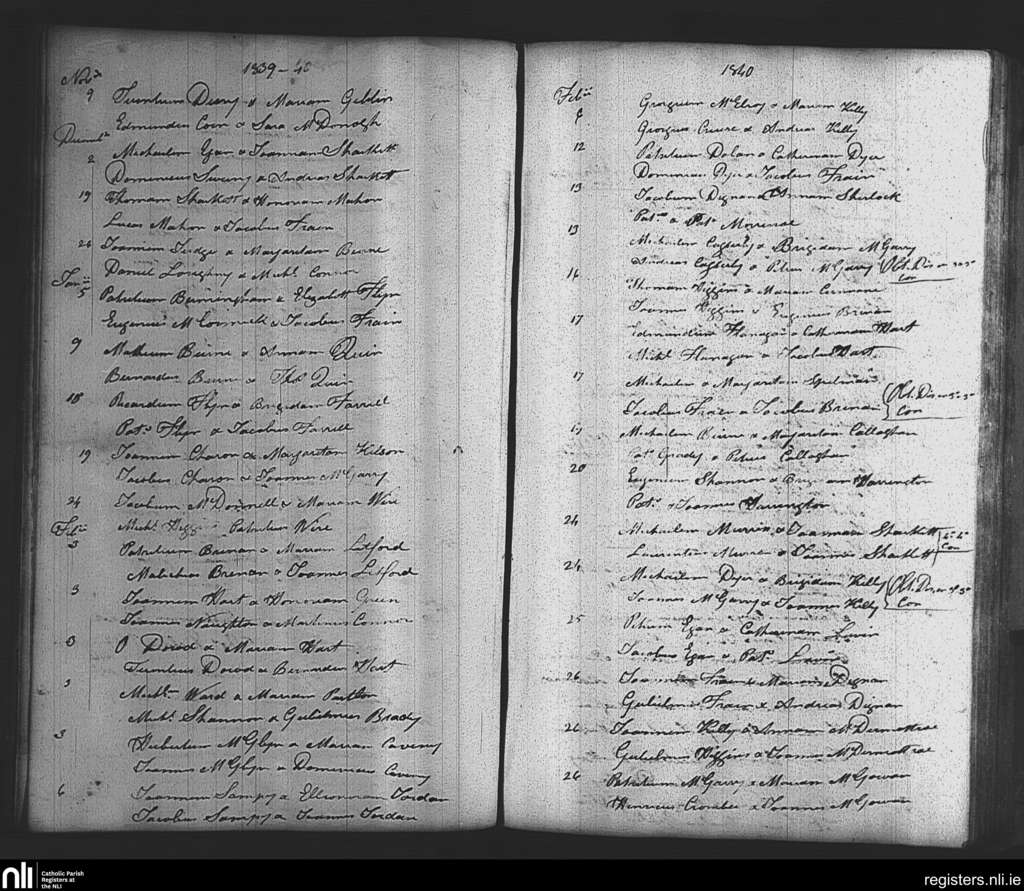 1839-40
Nob.
9 Turnlum Deary & Mariam Geblin
Edmundus Coin & Sara McDonogh
Decemb.
2 Michaelem Egan & Joannam Shackett
Dominicus Sweeny & Andreas Shackett
19 Thomam Shackett & Honoriam Mahon
Lucas Mahon & Jacobus Frain
26 Joannem Judge & Margaritam Beirne
Daniel Loughny & Michl Connor
Jan.
5 Patritium Bermingham & Elizabeth Flyn
Eugenius McCormick & Jacobus Frain
9 Mattheum Beirne & Annam Quin
Bernardus Beirn & Thos Quin
18 Ricardum Flyn & Brigidam Farrell
Pats Flyn & Jacobus Farrell
19 Joannem Charon & Margaritam Kilson
Jacobus Charon & Joannes McGarry
24 Jacobum McDonnell & Mariam Wire
Michl Patritius Wire
Feb.
3 Patritium Brenan & Mariam Litford
Malachias Brenan & Joannes Litford
3 Joannem Hart & Honoriam Green
Joannes Naughton & Martinus Connor
3 O Dowd & Mariam Hart
Turnlius Dowd & Bernardus Hart
3 Michlm Ward & Mariam Patton
Michl Shannon & Gulielmus Brady
3 Hubertum McGlyn & Mariam Caveny
Joannes McGlyn & Dominicus Caveny
6 Joannem Sampy & Elleonoram Jordan
Jacobus Sampy & Joannes Jordan
1840
Feb.
8 Georgium McElroy & Mariam Kelly
Georgius & Andreas Kelly
12 Patritium Dolan & Catherinam Dyer
Dominicus Dyer & Jacobus Frain
13 Jacobum Dignan & Annam Sherlock
Patrs & Patr
13 Michaelem & Brigidam McGarry
Andreas & Petrus McGarry Obt. Dis. in 3o 3o
Con
16 Thomam Higgins & Mariam
Joannes Higgins & Eugenius Brenan
17 Edmundum Flanagan & Catherinam Hart
Michl Flanagan & Jacobus Hart
17 Michaelem & Margaritam Spelman
Jacobus Frain & Jacobus Brenan Obt. Dis. in 3o 3o
Con
17 Michaelem Beirne & Margaritam Callaghan
Pats Grady & Petrus Callaghan
20 Eugenium Shannon & Harrington
Pats & Joannes Harrington
24 Michaelem Murren & Joannam Shackett 4o 4o
Laurentius & Joannes Shackett Con
24 Michaelem Dyer & Brigidam Kelly Obt. Dis. in
Joannes McGarry & Joannes Kelly Con
25 Petrum Egan & Catherinam Lavin
Jacobus Egan & Pats Lavin
26 Joannem Frain & Mariam Dignan
Gulielmus Frain & Andreas Dignan
26 Joannem Kelly & Annam McDermottroe
Gulielmus Higgins & Joannes McDermottroe
26 Patritium McGarry & Mariam McGowan
Henricus & Joannes McGowan
nli Catholic Parish
Registers at
the NLI
registers.nli.ie